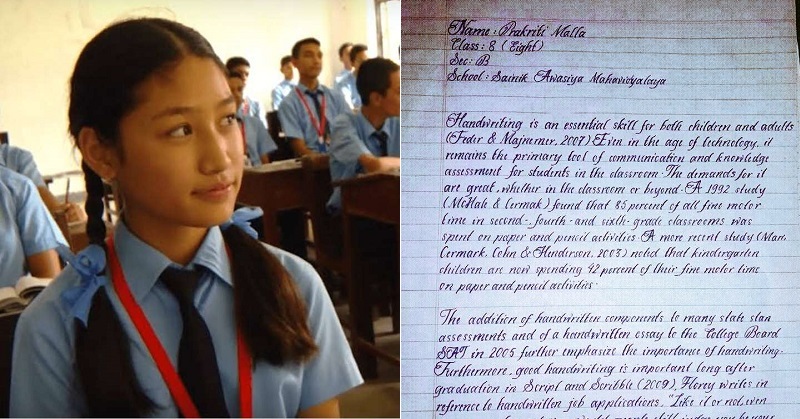 Name : Prakriti Malla
Class : 8 ( Eight )
Sec : B
School : Sainik Awasiya Mahavidyalaya
Handwriting is an essential skill for both children and adults
(Feder & Majnemer, 2007) Even in the age of technology, it
remains the primary tool of communication and knowledge
assessment for students in the classroom. The demands for it
are great, whether in the classroom or beyond. A 1992 study
(McHale & Cermak) found that 85 percent of all fine motor
time in second-, fourth- and sixth-grade classrooms was
spent on paper and pencil activities. A more recent study (Marr,
Cermark, Cohn & Henderson, 2003) noted that kindergarten
children are now spending 42 percent of their fine motor time
on paper and pencil activities.
The addition of handwritten components to many state stan
assessments and of a handwritten essay to the College Board
SAT in 2005 further emphasize the importance of handwriting.
Furthermore, good handwriting is important long after
graduation in Script and Scribble (2009), Florey writes in
reference to handwritten job applications, "Like it or not, even